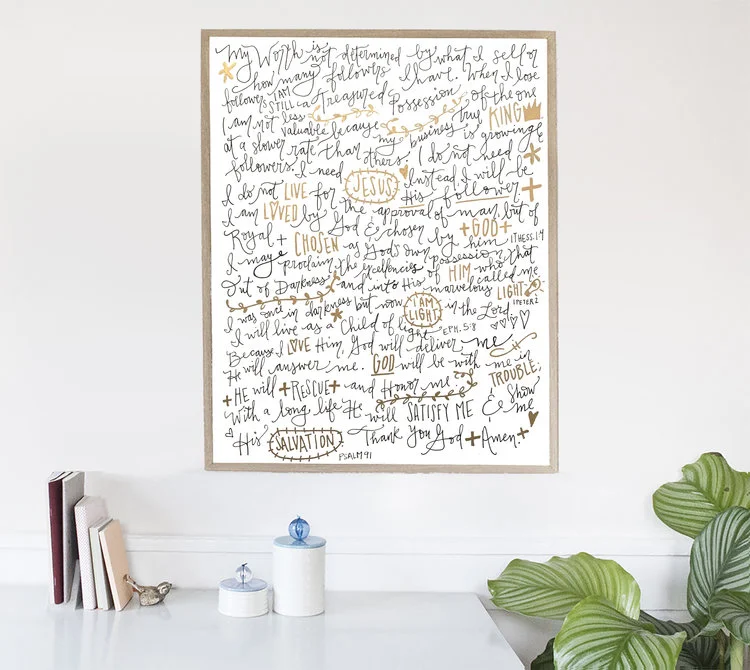 My Worth is not determined by what I sell or
how many followers I have. When I lose
followers I AM STILL a Treasured Possession of the one
I am not less valuable because my business is growing
true KING
at a slower rate than others. I do not need
followers. I need JESUS Instead I will be
His follower
I do not LIVE for the approval of man, but of
+GOD+
I am LOVED by God & chosen by him 1 THESS. 1:4
Royal + CHOSEN as God's own possession that
I may proclaim the excellencies of HIM who that
Out of Darkness and into His marvelous LIGHT
called me
1 PETER 2
I was once in darkness but now I AM LIGHT in the Lord.
I will live as a Child of light - EPH. 5:8
Because I LOVE Him, God will deliver me
He will answer me. GOD will be with me in
TROUBLE;
+HE will +RESCUE+ and Honor me
With a long life He will SATISFY ME & Show me
His SALVATION Thank You God + Amen. +
PSALM 91